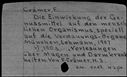 Cramer, F.
Die Einwirkung der Ge-
nussmittel auf den mensch-
lichen Organismus speziell
auf die Verdauungs-Organe
München, Lehmann, 1907.
Vorlesungen
über Magen und Darmkrank-
heiten von F. Cramer. H.3.